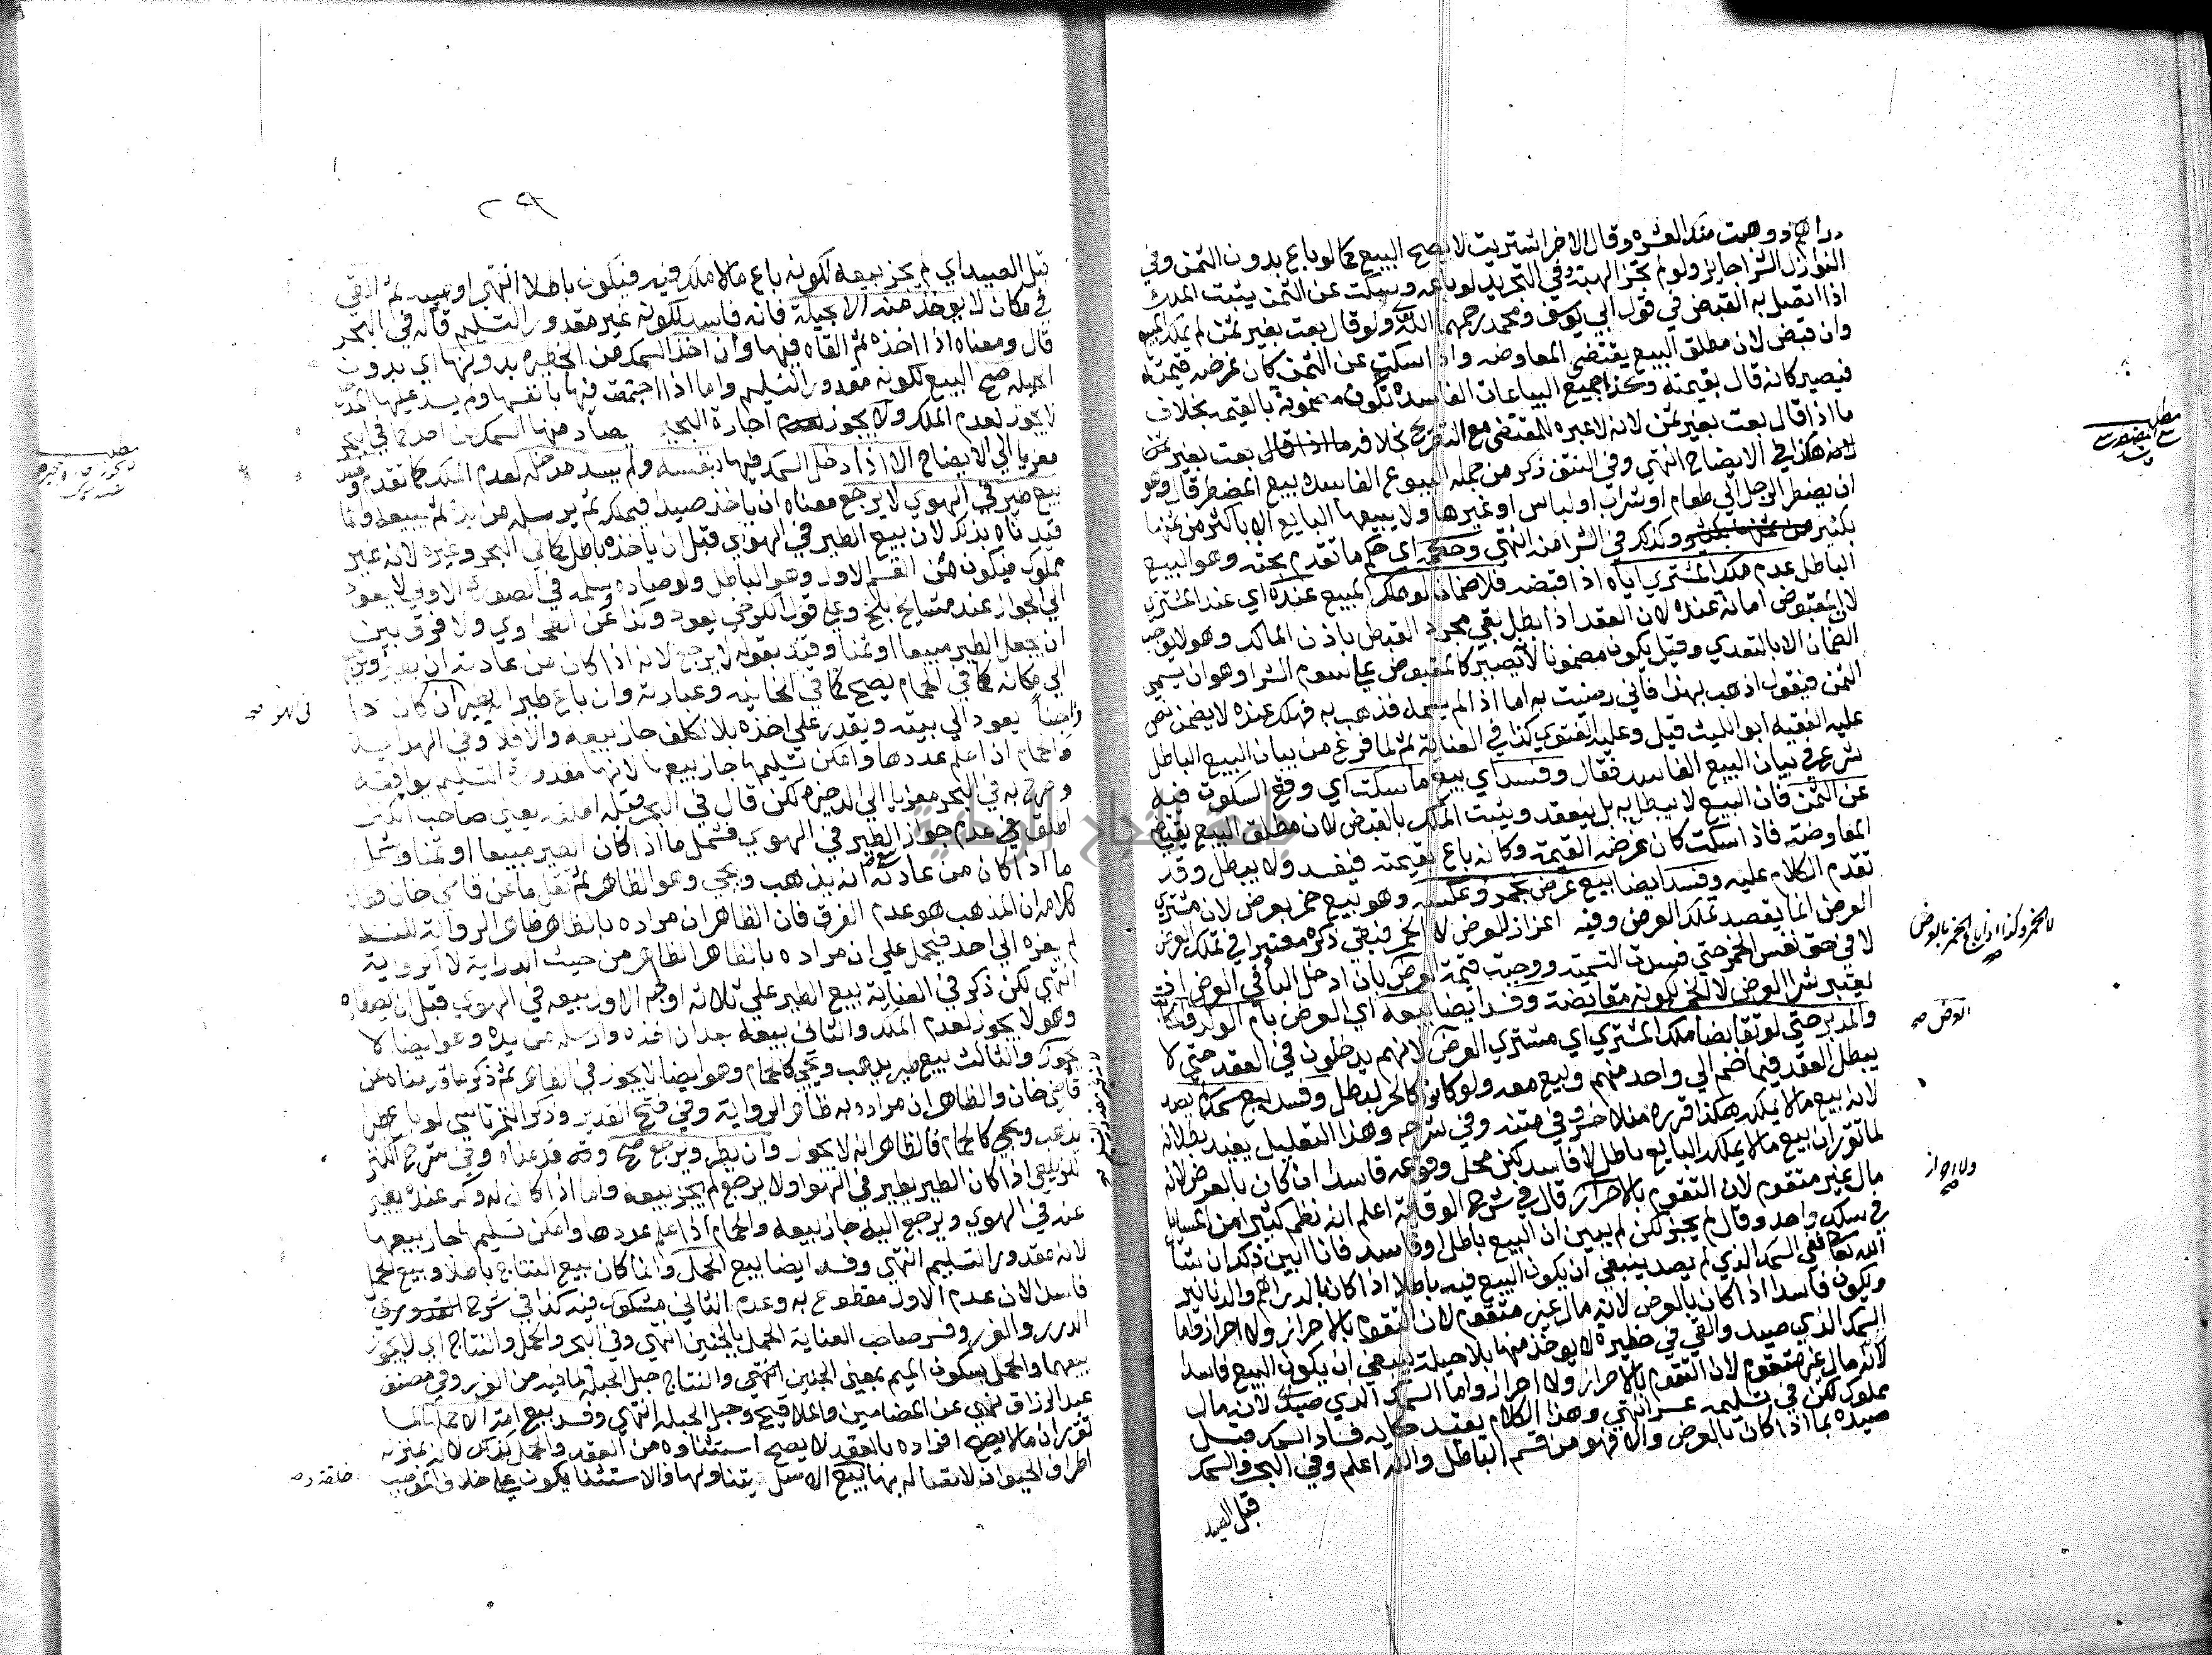 دراهم ووهبت منك العشرة وقال الاخر اشتريت لا يصح البيع كما لو باع بدون الثمن وفي
النوازل الشرا جايز ولم تجز الهبة وفي التجريد لو باعه وسكت عن الثمن يثبت الملك
اذا اتصل به القبض في قول ابي يوسف ومحمد رحمهما الله ولو قال بعت بغير ثمن لم يملك المبيع
وان قبض لان مطلق البيع يقتضي المعاوضه واذا سكت عن الثمن كان غرضه قيمته
فيصير كانه قال بقيمته وكذا جميع البياعات الفاسدة تكون مضمونة بالقيمة بخلاف
ما اذا قال بعت بغير ثمن لانه لا عبره للمقتضى مع التصريح بخلافه بعت بغير ثمن
هكذا في الايضاح انتهي وفي النتف ذكر من جملة البيوع الفاسدة بيع المضطر قال وهو
ان يضطر الرجل الي طعام او شراب او لباس او غيرها ولا يبيعها البايع الا باكثر من ثمنها
بكثير وكذلك في الشرا منه انتهي وحكمه اي حكم ما تقدم بحثه وهو البيع
الباطل عدم ملك المشتري اياه اذا قبضه فلا ضمان لو هلك المبيع عنده اي عند المشتري
لان المقبوض امانة عنده لان العقد اذا بطل بقي مجرد القبض باذن المالك وهو لا يوجب
الضمان الا بالتعدي وقيل يكون مضمونا لانه يصير كالمقبوض علي سوم الشرا وهو ان يسمي
الثمن فيقول اذهب بهذا فاني رضيت به اما اذا لم يسمه فذهب به فهلك عنده لا يضمن نص
عليه الفقيه ابو الليث قيل وعليه الفتوي كذا في العناية ثم لما فرغ من بيان البيع الباطل
شرع في بيان البيع الفاسد فقال وفسد اي بيع ما سكت اي وقع السكوت فيه
عن الثمن فان البيع لا يبطل به بل ينعقد ويثبت الملك بالقبض لان مطلق البيع يقتضي
المعاوضة فاذا سكت كان غرضه القيمة وكانه باع بقيمته فيفسد ولا يبطل وقد
تقدم الكلام عليه وفسد ايضا بيع عرض بخمر وعكسه وهو بيع خمر بعرض لان مشتري
العرض انما يقصد تملك العرض وفيه اعزاز للعرض لا الخمر فبقي ذكره معتبرا في تملك العرض
لا في حق نفس الخمر حتي فسدت التسمية ووجبت قيمة العرض بان ادخل البا في العرض اذ
يعتبر شرا العرض لا الخمر لكونه مقايضة وفسد ايضا بيعه اي العرض بام الولد والمكاتب
والمدبر حتي لو تقابضا ملك المشتري اي مشتري العرض لانهم يدخلون في العقد حتي لا
يبطل العقد فيما ضم الي واحد منهم وبيع معه ولو كانوا كالحر لبطل وفسد بيع سمك لم يصد
لانه بيع ما لا يملكه هكذا قرره منلا خسرو في متنه وفي شرحه وهذا التعليل يفيد بطلانه
لما تقرر ان بيع ما لا يملكه البايع باطل لا فاسد لكن محل وقوعه فاسدا ان كان بالعرض لانه
مال غير متقوم لان التقوم بالاحراز قال في شرح الوقاية اعلم انه نظم كثيرا من المسايل
في سلك واحد وقال لم يجز لكن لم يبين ان البيع باطل او فاسد فانا ابين ذلك ان شا
الله تعالي ففي السمك الذي لم يصد ينبغي ان يكون البيع فيه باطلا اذا كان بالدراهم والدنانير
ويكون فاسدا اذا كان بالعرض لانه مال غير متقوم لان التقوم بالاحراز ولا احراز واما
السمك الذي صيد والقي في حظيرة لا يوخذ منها بلا حيلة ينبغي ان يكون البيع فاسدا
لانه مال غير متقوم لان التقوم بالاحراز ولا احراز واما السمك الذي صيد لانه مال
مملوك لكن في تسليمه عسر انتهي وهذا الكلام يفيد حكاية فساد السمك قبل
صيده بما اذا كان بالعرض والا فهو من قسم الباطل والله اعلم وفي البحر والسمك
قبل الصيد
مطلب
بيع المضطر
فاسد
لا الخمر وكذا اذا باع الخمر بالعرض
صح
العرض صح
ولا احراز
صح
٢٩
قبل الصيد اي لم يجز بيعه لكونه باع ما لا ملك فيه فيكون باطلا انتهي او صيد ثم القي
في مكان لا يوخذ منه الا بحيلة فانه فاسد لكونه غير مقدور التسليم قاله في البحر
قال ومعناه اذا اخذه ثم القاه فيها وان اخذ السمك من الحظيرة بدونها اي بدون
الحيلة صح البيع لكونه مقدور التسليم واما اذا اجتمعت فيها بانفسها ولم يسد عليها المدخل
لا يجوز لعدم الملك ولا يجوز اجارة البحيرة يصاد منها السمك كما في البحر
معزيا الي الايضاح الا اذا دخل السمك فيها بنفسه ولم يسد مدخله لعدم الملك كما تقدم وفسد
بيع طير في الهوي لا يرجع معناه ان ياخذ صيدا فيملكه ثم يرسله من يده ثم يبيعه وانما
قيدناه بذلك لان بيع الطير في الهوي قبل ان ياخذه باطل كما في البحر وغيره لانه غير
مملوك فيكون من القسم الاول وهو الباطل ولو صاده وسلمه في الصورة الاولي لا يعود
الي الجواز عند مشايخ بلخ وعلي قول الكرخي يعود وكذا عن الطحاوي ولا فرق بين
ان يجعل الطير مبيعا او ثمنا وقيد بقوله لا يرجع لانه اذا كان من عادته ان يطير ويرجع
الي مكانه كما في الحمام يصح كما في الخانيه وعبارته وان باع طيرا له يطير ان كان دا
يعود الي بيته ويقدر علي اخذه بلا تكلف جاز بيعه والا فلا وفي الهداية
والحمام اذا علم عددها وامكن تسليمها جاز بيعها لانها مقدورة التسليم يوافقه
وصرح به في البحر معزيا الي الذخيرة لكن قال في البحر قبله اطلقه يعني صاحب الكنز
اطلق في عدم جواز الطير في الهوي فشمل ما اذا كان الطير مبيعا او ثمنا وشمل
ما اذا كان من عادته انه يذهب ويجي وهو الظاهر ثم نقل ما عن قاضي خان فعلي
كلامه ان المذهب هو عدم الفرق فان الظاهر ان مراده بالظاهر ظاهر الرواية
لم يعزه الي احد فيحمل علي ان مراده بالظاهر الظاهر من حيث الدراية لا الرواية
انتهي لكن ذكر في العناية بيع الطير علي ثلاثة اوجه الاول بيعه في الهوي قبل ان يصطاده
وهو لا يجوز لعدم الملك والثاني بيعه بعد ان اخذه وارسله من يده وهو ايضا لا
يجوز والثالث بيع طير يذهب ويجي كالحمام وهو ايضا لا يجوز في الظاهر ثم ذكر ما قدمناه عن
قاضي خان والظاهر ان مراده به ظاهر الرواية وفي فتح القدير وذكر التمرتاشي لو باع
يذهب ويجي كالحمام فالظاهر انه لا يجوز وان يطر ويرجع صح وقد قدمناه وفي شرح الكنز
للزيلعي اذا كان الطير يطير في الهوا ولا يرجع لم يجز بيعه واما اذا كان له وكر عنده يطير
عنه في الهوي ويرجع اليه جاز بيعه والحمام اذا علم عددها وامكن تسليمها جاز بيعها
لانه مقدور التسليم انتهي وفسد ايضا بيع الحمل وانما كان بيع النتاج باطلا وبيع الحمل
فاسدا لان عدم الاول مقطوع به وعدم الثاني مشكوك فيه كذا في شرح
الدرر والغرر وفسر صاحب العناية الحمل بالجنين انتهي وفي البحر والحمل والنتاج اي لا يجوز
بيعهما والحمل بسكون الميم بمعني الجنين انتهي والنتاج حبل الحبلة لما فيه من الغرر وفي مصنف
عبد الرزاق نهي عن المضامين والملاقيح وحبل الحبلة انتهي وفسد بيع امة الا حملها لما
تقرر ان ما لا يصح افراده بالعقد لا يصح استثناوه من العقد والحمل كذلك لانه بمنزلة
اطراف الحيوان لاتصاله بها خلقة وبيع الاصل يتناولها فالاستثنا يكون علي خلاف الموجب
مطلب
في الهوا صح
خلقة صح